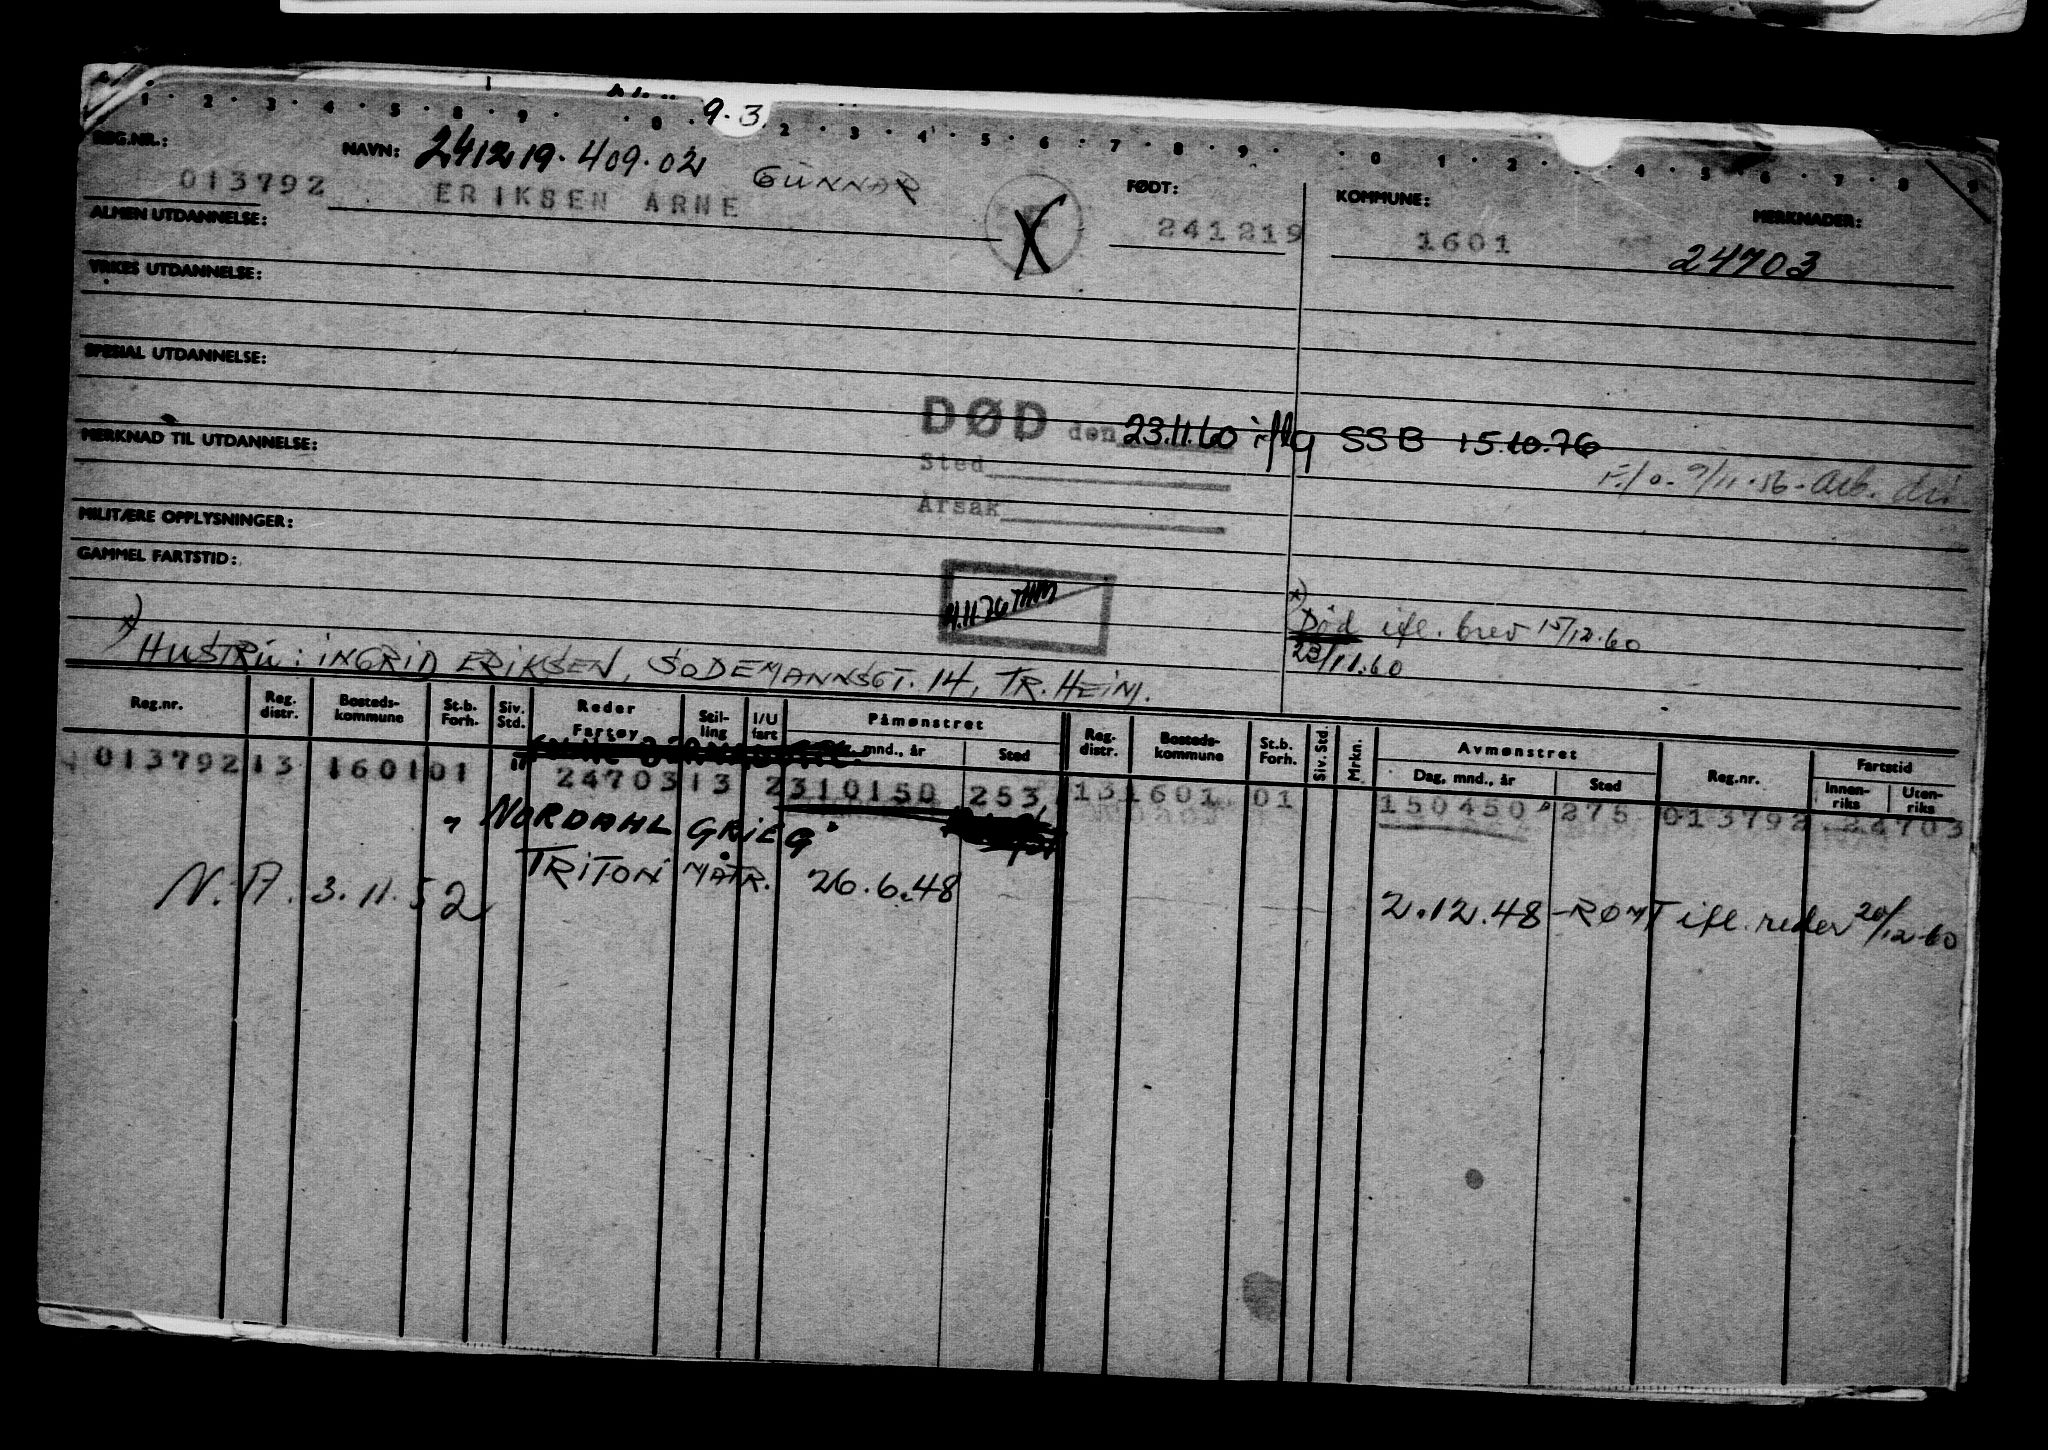 9.3.
1 . 2 . 3 . 4 . 5 . 8 . 9 . . 0 . 2 . 3 . 4 . 5 . 6 . 7 . 8 . 9 . . 0 1 . 2 . . 4 . 5 . 6 . 7 . 8 . 9
REG.NR.: NAVN: 241219.409.02 GUNNAR FØDT: KOMMUNE: MERKNADER:
013792 ERIKSEN ARNE 241219 1601 24703
ALMEN UTDANNELSE:
YRKES UTDANNELSE:
SPESIAL UTDANNELSE:
DØD den 23.11.60 iflg SSB 15.10.76
MERKNAD TIL UTDANNELSE:
Sted
F/o. 9/11.56. arb. dir.
Årsak
MILITÆRE OPPLYSNINGER:
GAMMEL FARTSTID:
11.11.76 THM
*) Død ifl. brev 15/12.60
23/11.60
*) HUSTRU: INGRID ERIKSEN, SODEMANNSGT. 14, TR. HEIM.
Reg.nr. Reg. distr. Bosteds-kommune St.b. Forh. Siv. Std. Reder Fartøy Stil-ling I/U fart Påmønstret mnd., år Sted Reg. distr. Bosteds-kommune St.b. Forh. Siv. Std. Mrkn. Avmønstret Dag, mnd., år Sted Reg.nr. Fartstid Innen-riks Uten-riks
013792 13 1601 01 24703 13 2 310150 253 13 1601 01 150450 275 013792 24703
" NORDAHL GRIEG"
TRITON MATR. 26.6.48 2.12.48 - RØMT ifl. reder 20/12-60
N.A. 3.11.52